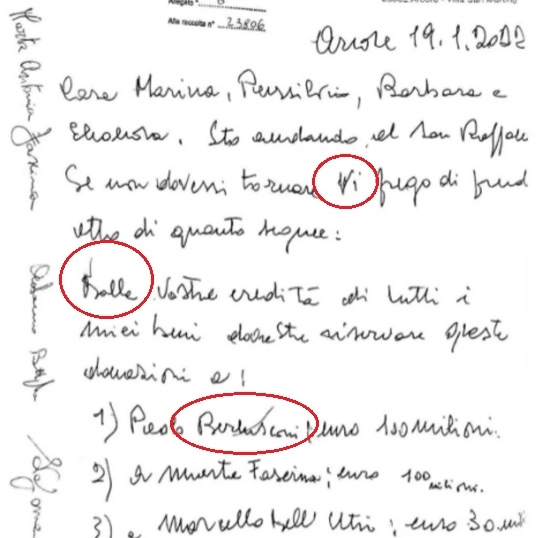 Allegato " B
Alla raccolta n° 23806
Arcore 19.1.2022
Cara Marina, Piersilvio, Barbara e
Eleonora. Sto andando al San Raffae
Se non dovessi tornare Vi prego di prend
etto di quanto segue:
Dalle Vostre eredità di tutti i
miei beni dovreste riservare queste
donazioni a:
1) Paolo Berlusconi; euro 100 milioni.
2) a Marta Fascina; euro 100 milioni.
3) a Marcello Dell'Utri; euro 30 mil
Marta Antonia Fascina